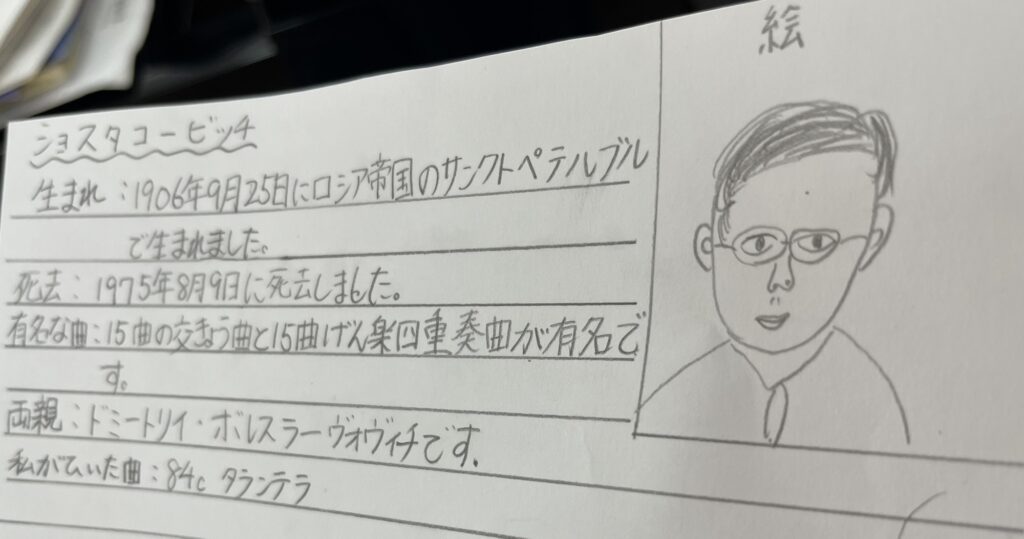 絵
ショスタコービッチ
生まれ:1906年9月25日にロシア帝国のサンクトペテルブル
で生まれました。
死去:1975年8月9日に死去しました。
有名な曲:15曲の交きょう曲と15曲げん楽四重奏曲が有名で
す。
両親:ドミートリイ・ボレスラーヴォヴィチです.
私がひいた曲:84c タランテラ